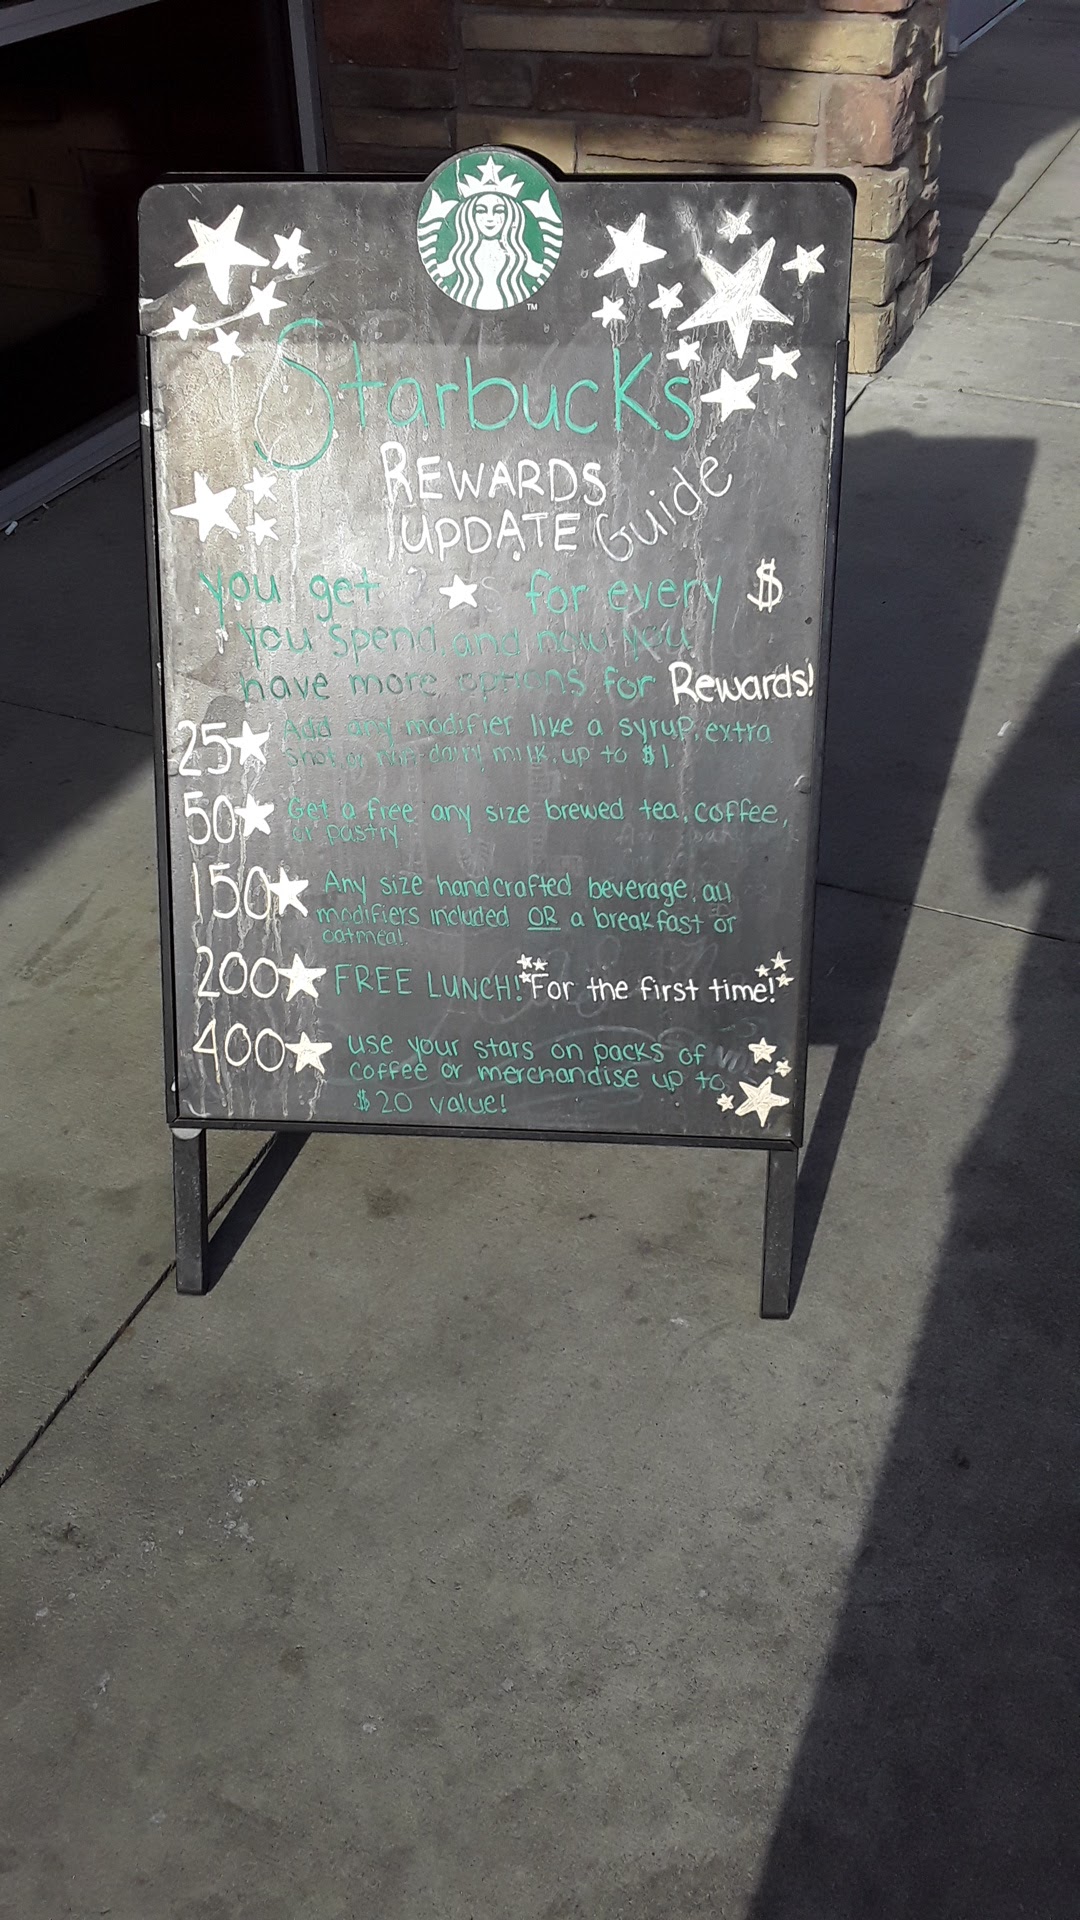 TM
Starbucks
REWARDS
UPDATE Guide
you get 2 ★s for every $
you spend, and now you
have more options for Rewards!
25★ Add any modifier like a syrup, extra
shot, or non-dairy milk, up to $1
50★ Get a free any size brewed tea, coffee,
or pastry
150★ Any size handcrafted beverage, all
modifiers included OR a breakfast or
oatmeal.
200★ FREE LUNCH! For the first time!
400★ use your stars on packs of
coffee or merchandise up to
$20 value!